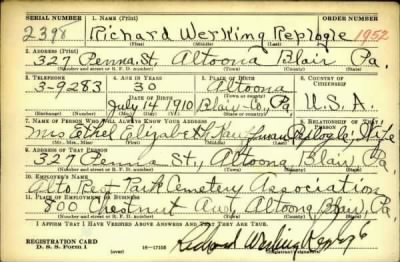 SERIAL NUMBER 1. NAME (Print) ORDER NUMBER
2398 Richard Werking Replogle 1952
(First) (Middle) (Last)
2. ADDRESS (Print)
327 Penna. St. Altoona Blair Pa.
(Number and street or R. F. D. number) (Town) (County) (State)
3. TELEPHONE 4. AGE IN YEARS 5. PLACE OF BIRTH 6. COUNTRY OF CITIZENSHIP
3-9283 30 Altoona
DATE OF BIRTH (Town or county)
July 14 1910 Blair Co., Pa. U.S.A.
(Exchange) (Number) (Mo.) (Day) (Yr.) (State or country)
7. NAME OF PERSON WHO WILL ALWAYS KNOW YOUR ADDRESS 8. RELATIONSHIP OF THAT PERSON
Mrs Ethel Elizabeth Replogle, Wife
(Mr., Mrs., Miss) (First) (Middle) (Last)
9. ADDRESS OF THAT PERSON
327 Penna St., Altoona Blair, Pa.
(Number and street or R. F. D. number) (Town) (County) (State)
10. EMPLOYER'S NAME
Alto Rest Park Cemetery Association
11. PLACE OF EMPLOYMENT OR BUSINESS
800 Chestnut Ave, Altoona Blair, Pa.
(Number and street or R. F. D. number) (Town) (County) (State)
I AFFIRM THAT I HAVE VERIFIED ABOVE ANSWERS AND THAT THEY ARE TRUE.
REGISTRATION CARD
D. S. S. Form 1 (over) 16—17105 Richard Werking Replogle